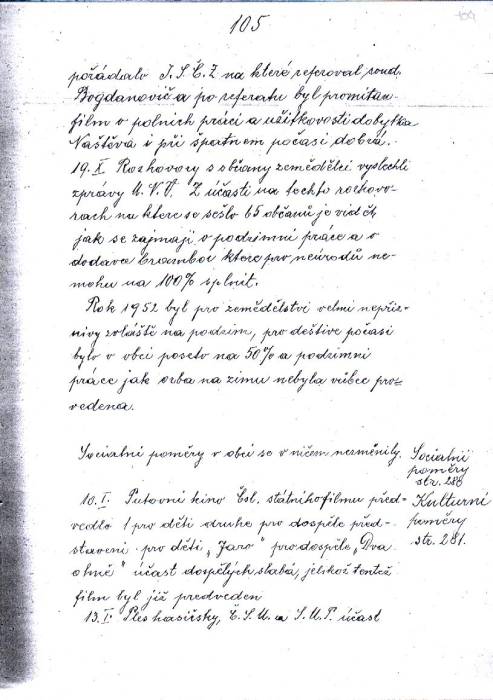 105
109
pořádalo I.S.Č.Ž na které referoval soud.
Bogdanovič a po referatu byl promitán
film o polních práci a užitkovosti dobytka
Naštěva i při špatnem počasi dobrá.
19.X Rozhovory s občany zemědělci vyslechli
zprávy M.N.V. Z účasti na techto rozhovo-
rach na ktere se sešlo 65 občanů je vidět,
jak se zajmaji o podzimni práce a o
dodavce brambor ktere pro neúrodů ne-
mohu na 100% splnit.
Rok 1952 byl pro zemědělství velmi nepříz-
nivy zvláště na podzim, pro deštive počasi
bylo v obci poseto na 50% a podzimni
práce jak orba na zimu nebyla vůbec pro-
vedena.
Socialní poměry v obci se v ničem nezměnily.
Socialní
poměry
str. 280
10.I. Putovni kino Čsl. státního filmu před-
vedlo 1 pro děti druhe pro dospěle před-
staveni pro děti „Jaro" pro dospěle „Dva
ohně" účast dospělých slabá, jelikož tentež
film byl již předveden
Kulturni
poměry
str. 281.
13.I. Ples hasičsky, Č.S.M. a S.M.P. účast